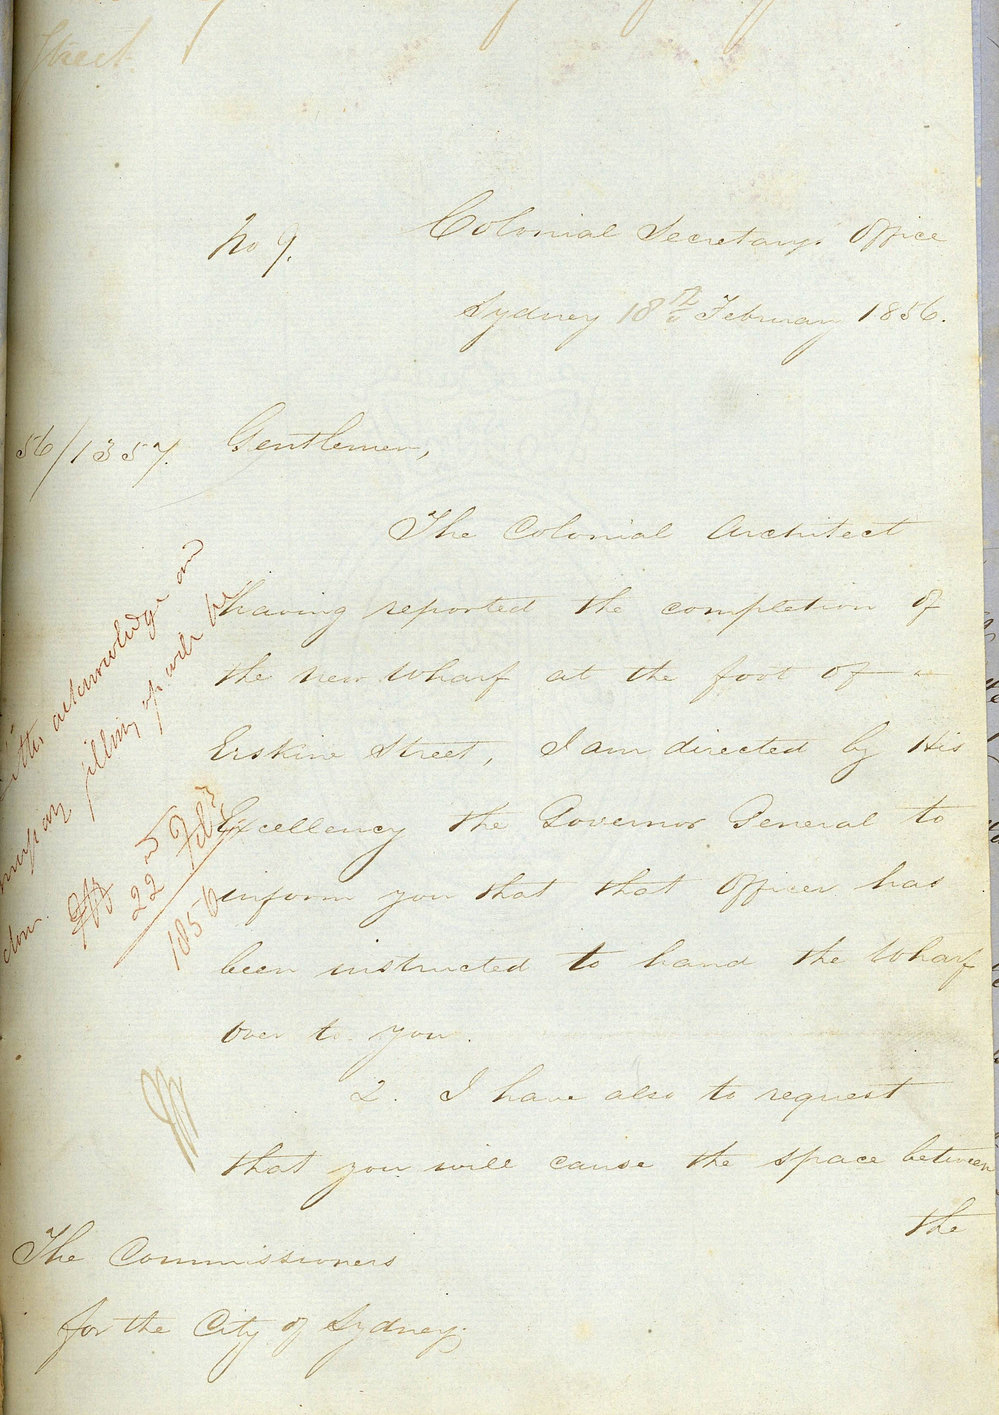 Street
No 9.
Colonial Secretarys Office
Sydney 18th February 1856.
56/1357.
Gentlemen,
The Colonial Architect
having reported the completion of
the new Wharf at the foot of
Erskine Street, I am directed by His
Excellency the Governor General to
inform you that that Officer has
been instructed to hand the Wharf
over to you.
2. I have also to request
that you will cause the space between
the
The Commissioners
for the City of Sydney.
acknowledge and
filling up will be
done.
22nd Feby
1856